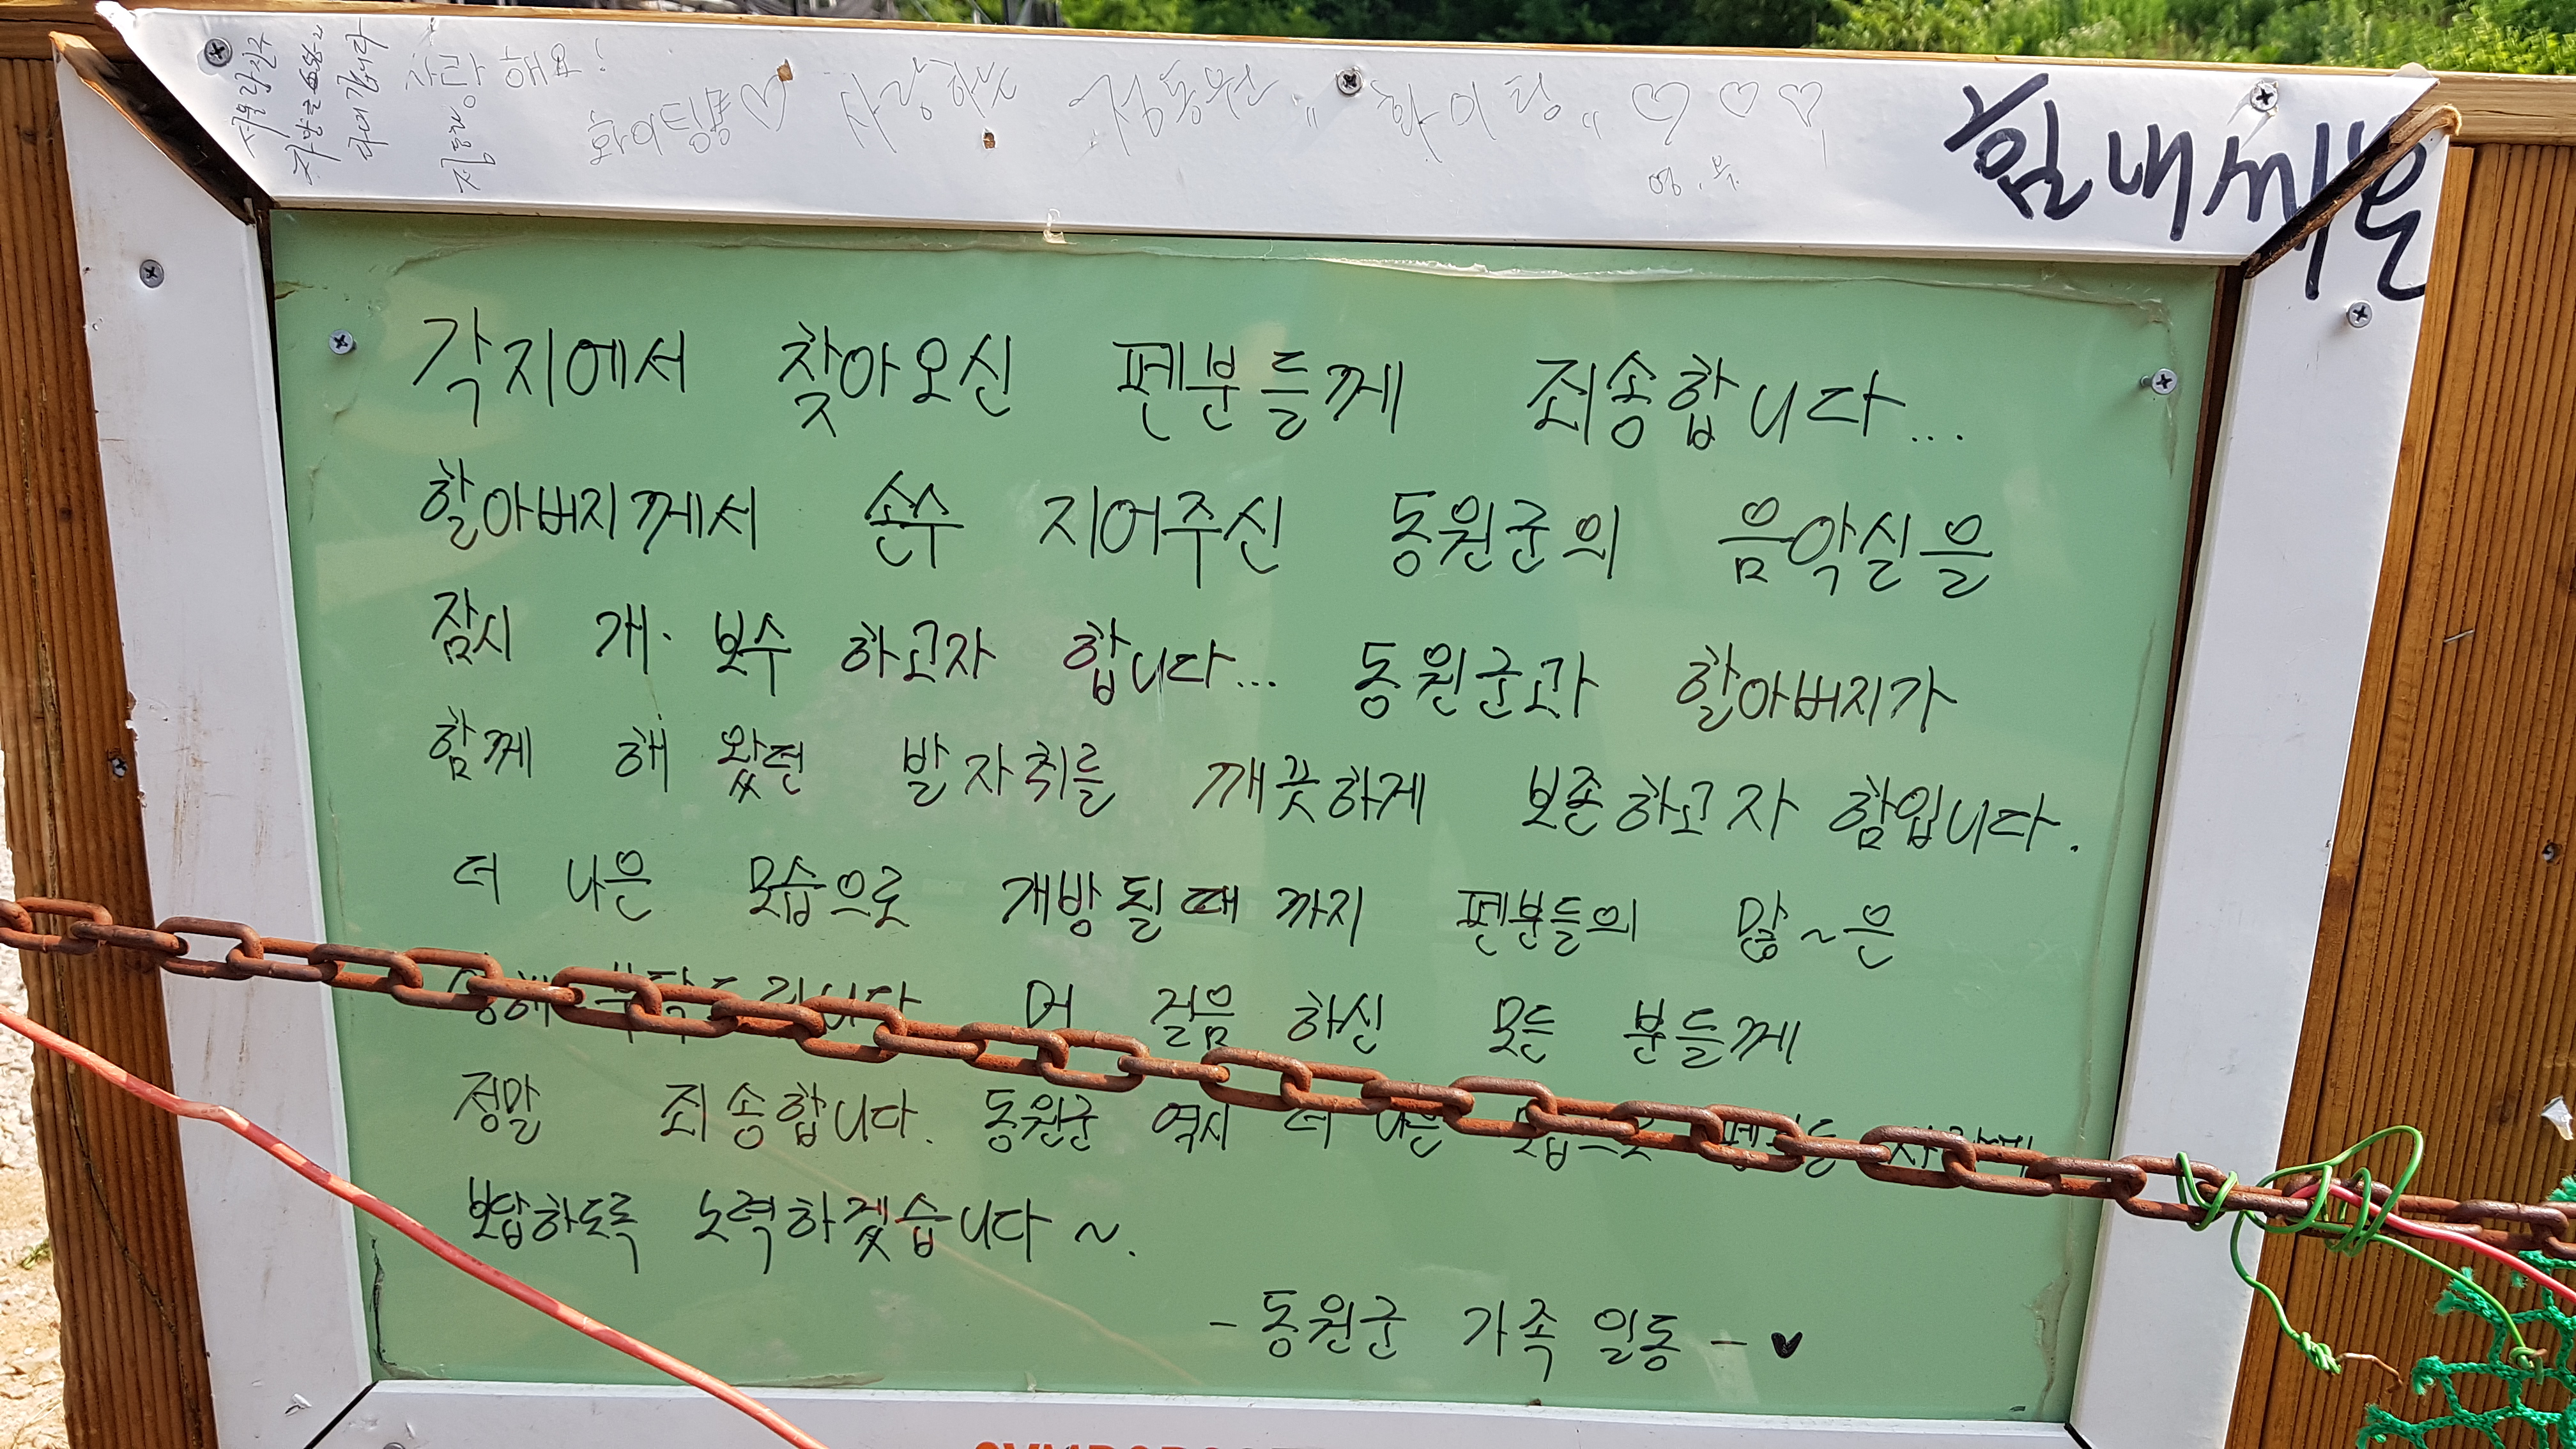 사랑해요!
화이팅 ♡ 사랑한는 정동원 "화이팅" ♡♡♡
힘내세요
각지에서 찾아오신 펜분들께 죄송합니다...
할아버지께서 손수 지어주신 동원군의 음악실을
잠시 개·보수 하고자 합니다... 동원군과 할아버지가
함께 해 왔던 발자취를 깨끗하게 보존하고자 함입니다.
더 나은 모습으로 개방될때 까지 펜분들의 많~은
양해 부탁드립니다 머 걸음 하신 모든 분들께
정말 죄송합니다. 동원군 역시 더 나은 모습으로
보답하도록 노력하겠습니다~.
- 동원군 가족 일동 - ♥